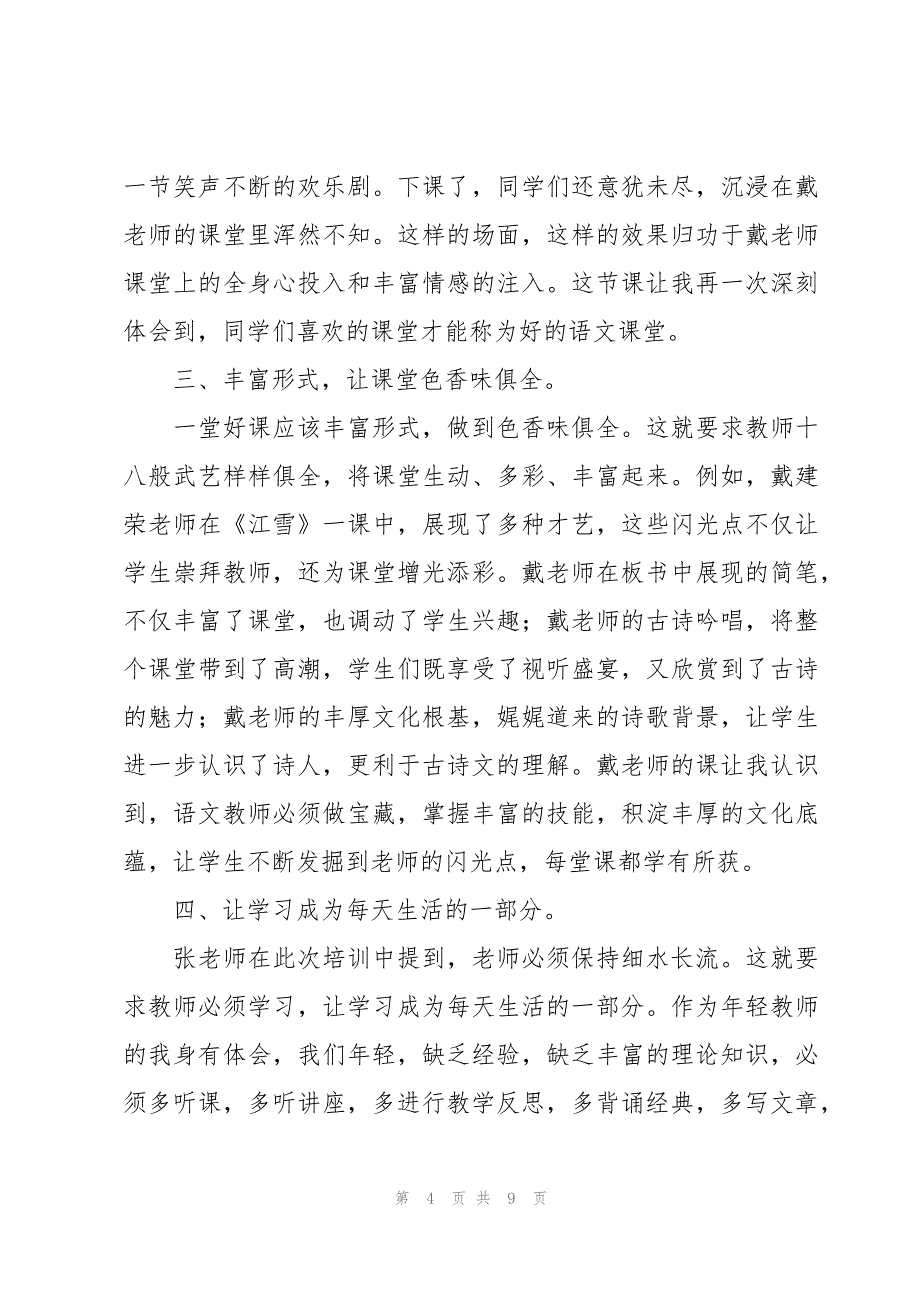 一节笑声不断的欢乐剧。下课了，同学们还意犹未尽，沉浸在戴
老师的课堂里浑然不知。这样的场面，这样的效果归功于戴老师
课堂上的全身心投入和丰富情感的注入。这节课让我再一次深刻
体会到，同学们喜欢的课堂才能称为好的语文课堂。
三、丰富形式，让课堂色香味俱全。
一堂好课应该丰富形式，做到色香味俱全。这就要求教师十
八般武艺样样俱全，将课堂生动、多彩、丰富起来。例如，戴建
荣老师在《江雪》一课中，展现了多种才艺，这些闪光点不仅让
学生崇拜教师，还为课堂增光添彩。戴老师在板书中展现的简笔，
不仅丰富了课堂，也调动了学生兴趣；戴老师的古诗吟唱，将整
个课堂带到了高潮，学生们既享受了视听盛宴，又欣赏到了古诗
的魅力；戴老师的丰厚文化根基，娓娓道来的诗歌背景，让学生
进一步认识了诗人，更利于古诗文的理解。戴老师的课让我认识
到，语文教师必须做宝藏，掌握丰富的技能，积淀丰厚的文化底
蕴，让学生不断发掘到老师的闪光点，每堂课都学有所获。
四、让学习成为每天生活的一部分。
张老师在此次培训中提到，老师必须保持细水长流。这就要
求教师必须学习，让学习成为每天生活的一部分。作为年轻教师
的我身有体会，我们年轻，缺乏经验，缺乏丰富的理论知识，必
须多听课，多听讲座，多进行教学反思，多背诵经典，多写文章，
第 4 页 共 9 页